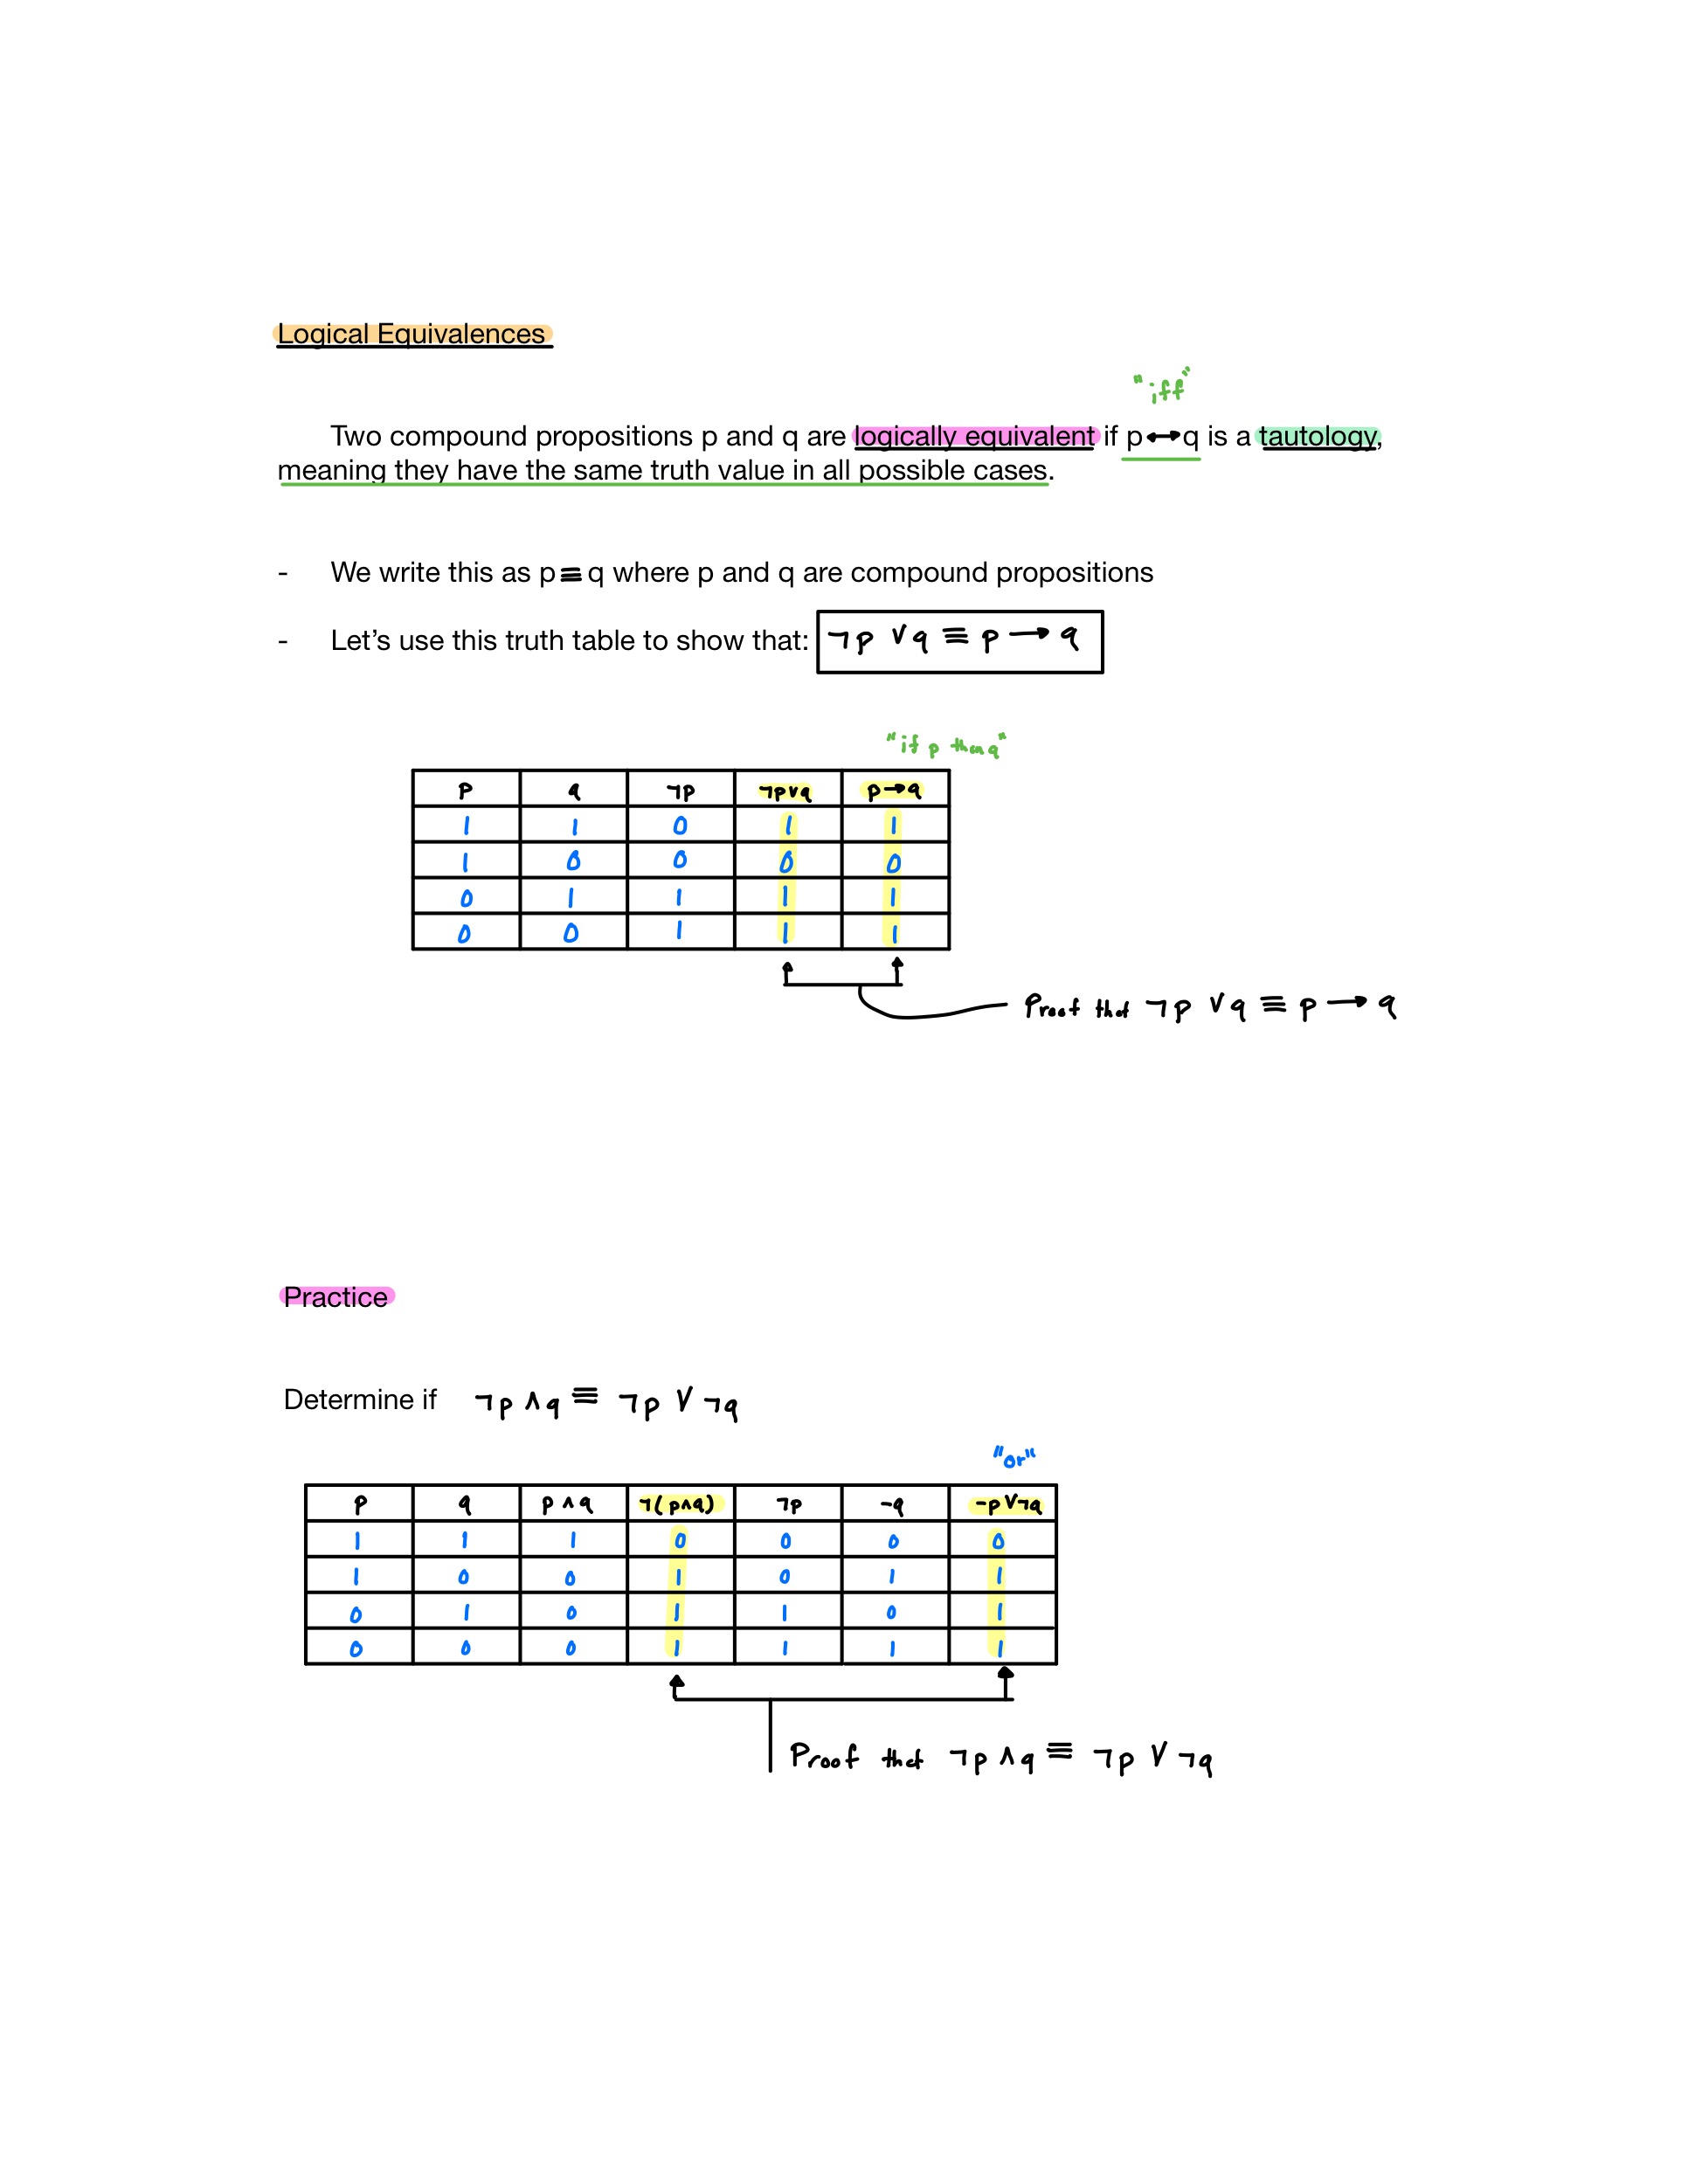 Logical Equivalences
"iff"
Two compound propositions p and q are logically equivalent if p↔q is a tautology,
meaning they have the same truth value in all possible cases.
- We write this as p≡q where p and q are compound propositions
- Let's use this truth table to show that: ¬p ∨q ≡ p → q
"if p then q"
p q ¬p ¬p∨q p→q
1 1 0 1 1
1 0 0 0 0
0 1 1 1 1
0 0 1 1 1
Proof that ¬p ∨q ≡ p → q
Practice
Determine if ¬p ∧q ≡ ¬p ∨ ¬q
"or"
p q p ∧ q ¬(p∧q) ¬p -q -p ∨¬q
1 1 1 0 0 0 0
1 0 0 1 0 1 1
0 1 0 1 1 0 1
0 0 0 1 1 1 1
Proof that ¬p ∧q ≡ ¬p ∨ ¬q